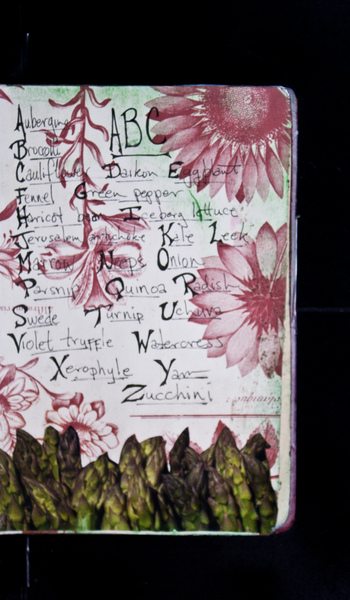 ABC
Aubergine
Brocolli
Cauliflower Daikon Eggplant
Fennel Green pepper
Haricot bean Iceberg lettuce
Jerusalem artichoke Kale Leek
Marrow Neeps Onion
Parsnip Quinoa Radish
Swede Turnip Uchuva
Violet truffle Watercress
Xerophyle Yam
Zucchini